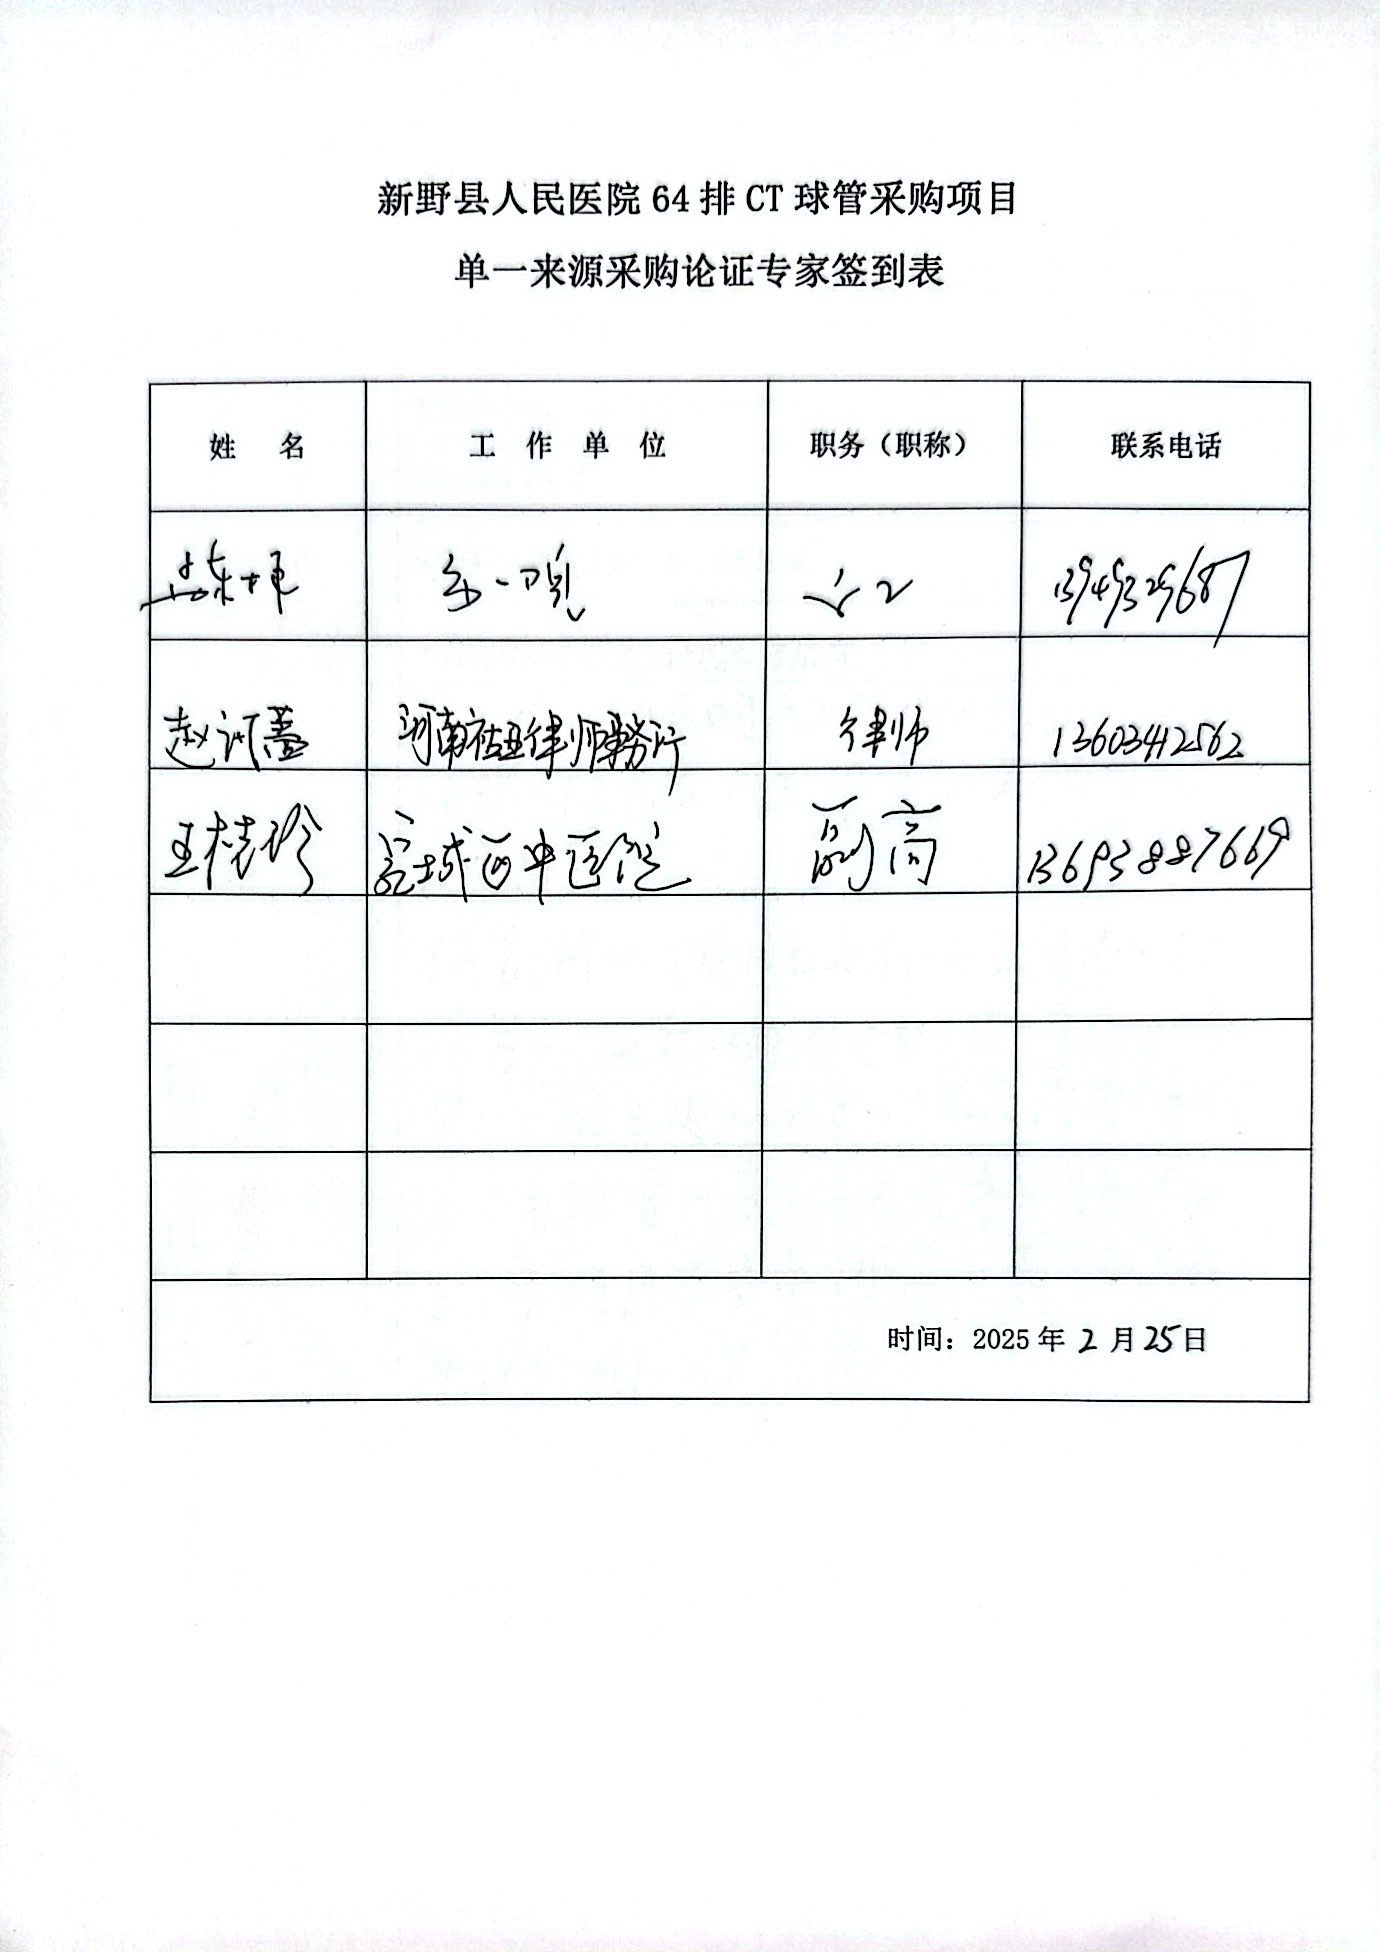 新野县人民医院 64 排 CT 球管采购项目
单一来源采购论证专家签到表
姓 名 工 作 单 位 职务（职称） 联系电话
13949329687
赵 河南祜亚律师事务所 律师 13603412562
王桂珍 宛城区中医院 副高 13693887669
时间：2025 年 2 月 25 日